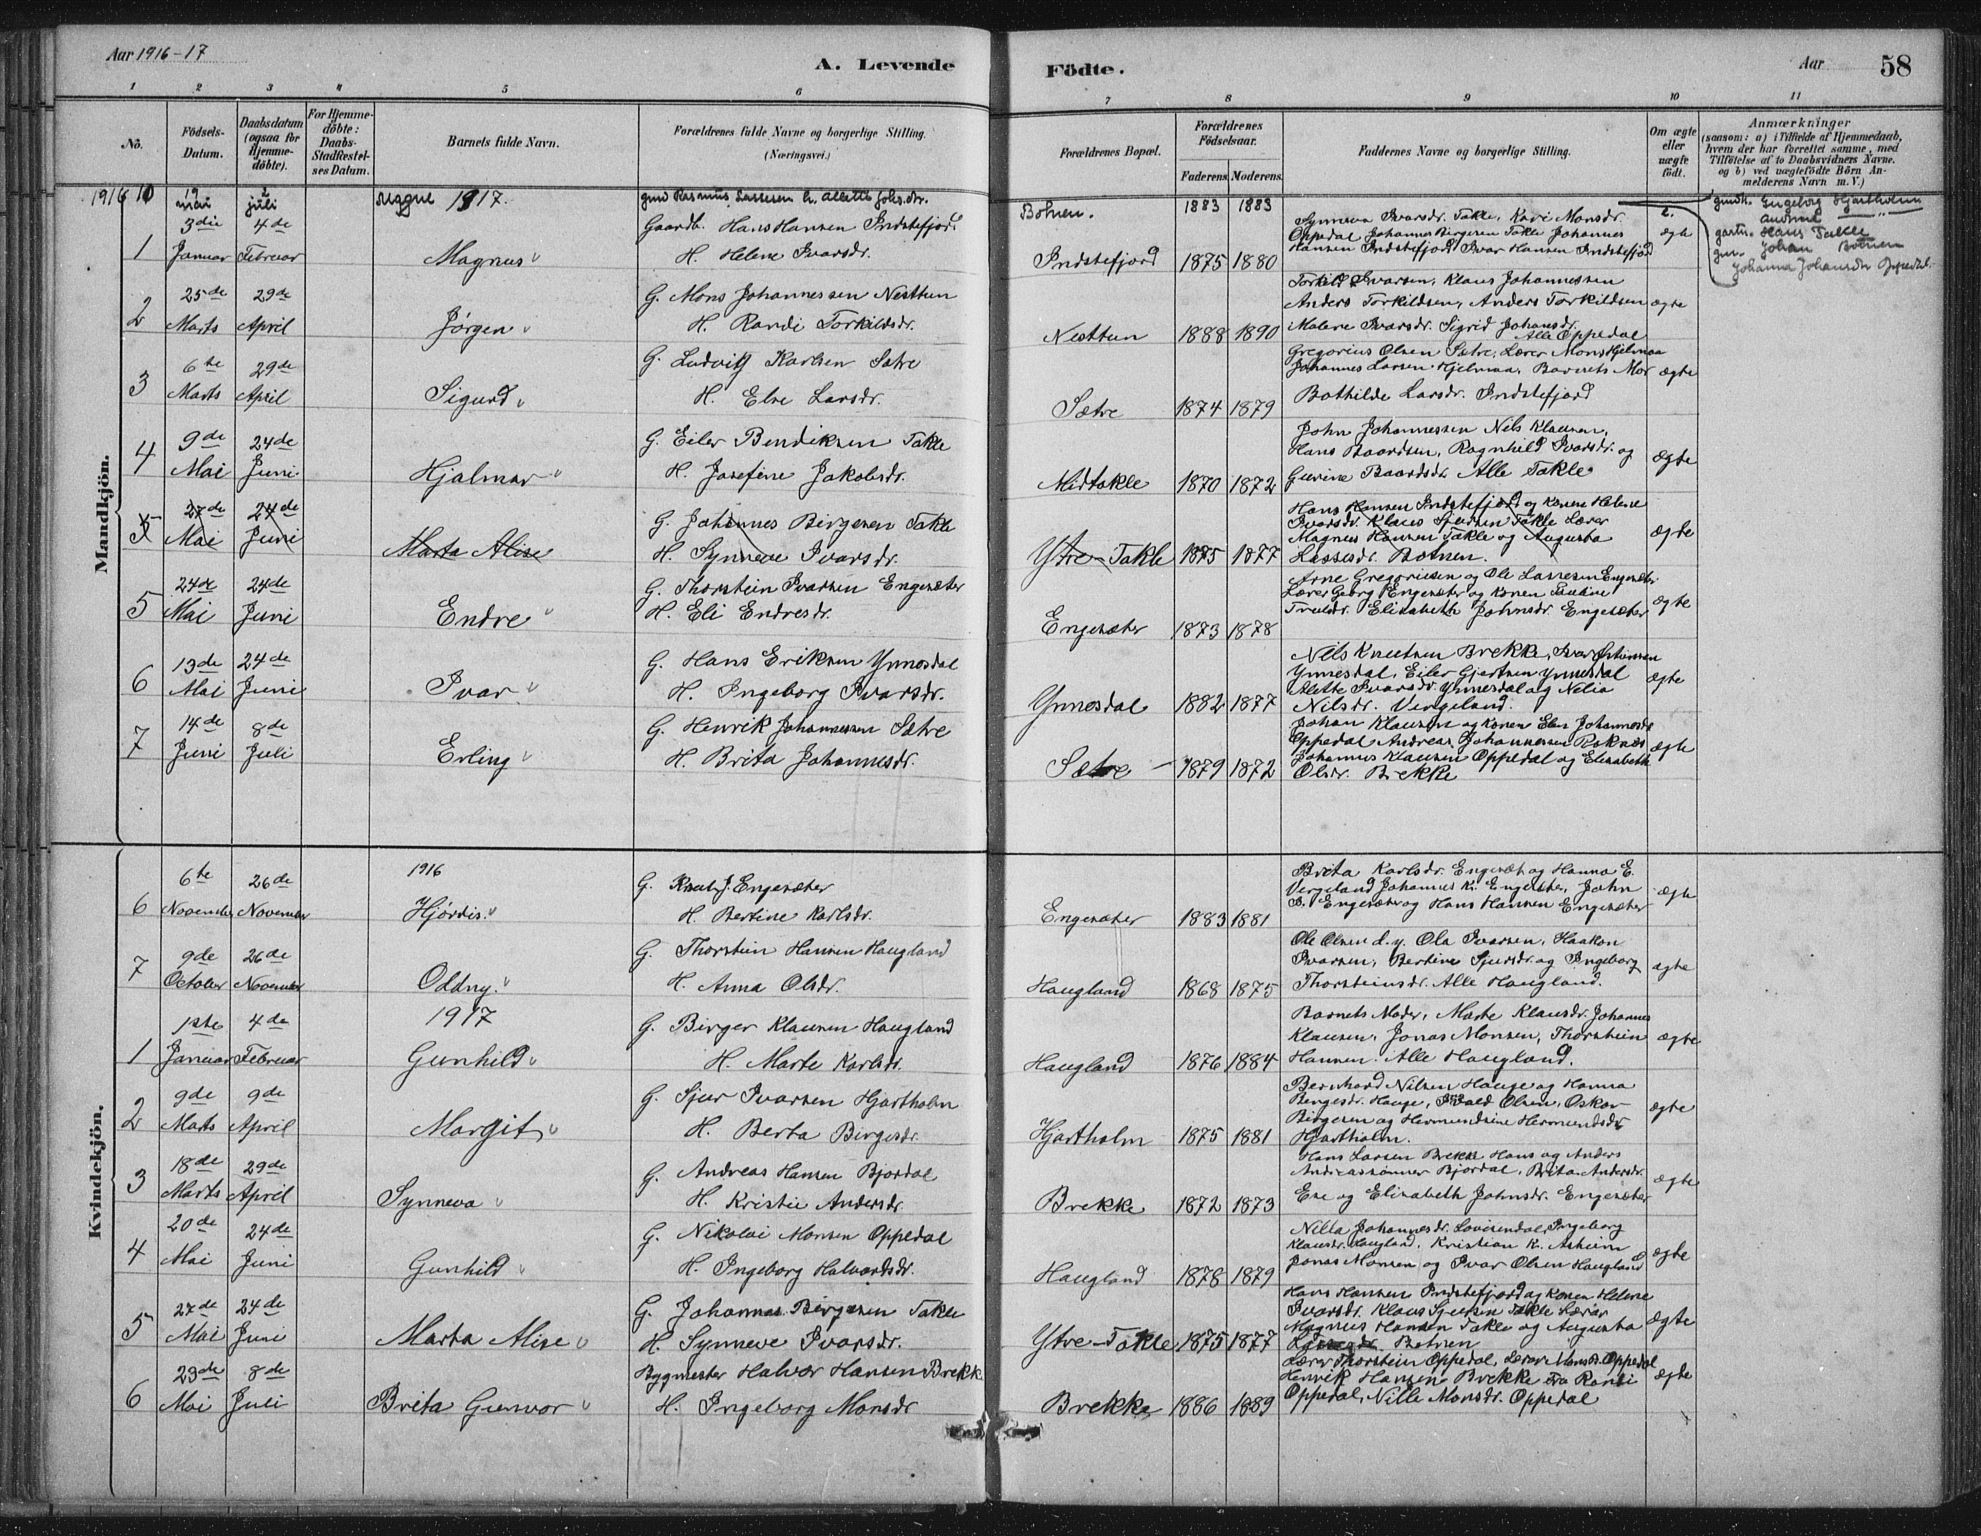 Aar 1916-17
A. Levende
Födte.
Aar
58
1 2 3 4 5 6 7 8 9 10 11
No.
Födsels-Datum.
Daabsdatum (ogsaa for Hjemme-döbte).
For Hjemme-döbte: Daabs-Stadfæstel-ses Datum.
Barnets fulde Navn.
Forældrenes fulde Navne og borgerlige Stilling. (Næringsvei.)
Forældrenes Bopæl.
Forældrenes Födselsaar.
Faderens. Moderens.
Faddernes Navne og borgerlige Stilling.
Om ægte eller uægte födt.
Anmærkninger
(saasom: a) i Tilfælde af Hjemmedaab, hvem der har forrettet samme, med Tilföielse af to Daabsvidners Navne. og b) ved uægtefödte Börn An-melderens Navn m. V.)
Mandkjön.
1916 10 19 mai 2 juli 1917. gmd Rasmus Lassesen h. Alette Johs.dr. Botnen. 1883 1883 e. gmdk. Engeborg Hjartholm
Andrea
Hans Takle
Johan Botnen
Johanna Johansdr Oppedal
1 3die Januar 4de Februar Magnus Gaardb. Hans Hansen Indstefjord
H. Helene Ivarsdr. Indstefjord 1875 1880 Synneva Ivarsdr. Takle, Kari Monsdr.
Oppedal Johannes Birgesen Takle Johannes
Hansen Indstefjord Ivar Hansen Indstefjord ægte
2 25de Marts 29de April Jørgen G. Mons Johannessen Nesttun
H. Randi Torkildsdr. Nesttun 1888 1890 Torkild Ivarsen, Klaus Johannessen
Anders Torkildsen, Anders Torkildsen
Malene Ivarsdr. Sigrid Johansdr.
Alle Oppedal ægte
3 6te Marts 29de April Sigurd G. Ludvig Karlsen Sætre
H. Else Larsdr. Sætre 1874 1879 Gregorius Olsen Sætre, Lærer Mons Hjelmaa
Johannes Larsen Hjelmaa, Barnets Mor
Bothilde Larsdr. Indstefjord ægte
4 9de Mai 24de Juni Hjalmar G. Eiler Bendiksen Takle
H. Josefine Jakobsdr. Midtakle 1870 1872 John Johannessen Nils Klausen,
Hans Baardsen, Ragnhild Ivarsdr. og
Gurine Baardsdr. Alle Takle ægte
5 27de Mai 24de Juni Marta Alise G. Johannes Birgesen Takle
H. Synneve Ivarsdr. Ytre-Takle 1875 1877 Hans Hansen Indstefjord og Konene Helene
Ivarsdr. Klaus Sjursen Takle Lærer
Magnus Hansen Takle og Augusta
Lassesdr. Botnen. ægte
5 24de Mai 24de Juni Endre G. Thorstein Ivarsen Engesæter
H. Eli Endresdr. Engesæter 1873 1878 Arne Gregoriusen og Ole Lassesen Engesæter.
Lærer Georg Engesæter og Konen Pauline
Elisabeth Johnsdr. Engesæter ægte
6 13de Mai 24de Juni Ivar G. Hans Eriksen Ynnesdal
H. Ingeborg Ivarsdr. Ynnesdal 1882 1877 Nils Knutsen Brekke, Ivar Østensen
Ynnesdal, Eiler Gjertsen Ynnesdal
Alette Ivarsdr. Ynnesdal og Nelia
Nilsdr. Vergeland. ægte
7 14de Juni 8de Juli Erling G. Henrik Johannessen Sætre
H. Brita Johannesdr. Sætre 1879 1872 Johan Klausen og Konen Elen Johannesdr
Oppedal Andreas Johannessen Raknæs
Johannes Klausen Oppedal og Elisabeth
Olsdr. Brekke ægte
Kvindekjön.
1916
6 6te November 26de November Hjørdis. G. Knut J. Engesæter
H. Bertine Karlsdr. Engesæter 1883 1881 Brita Karlsdr. Engesæt og Hanna E.
Vergeland Johannes K. Engesæter, John
B. Engesæter og Hans Hansen Engesæter ægte
7 9de October 26de November Oddny. G. Thorstein Hansen Haugland
H. Anna Olsdr. Haugland 1868 1875 Ole Olsen d.y. Ola Ivarsen, Haakon
Ivarsen, Bertine Sjursdr. og Ingeborg
Thorsteinsdr. Alle Haugland. ægte
1917
1 1ste Januar 4de Februar Gunhild G. Birger Klausen Haugland
H. Marte Karlsdr. Haugland 1876 1884 Barnets Moder, Marte Klausdr. Johannes
Klausen, Jonas Monsen, Thorstein
Hansen. Alle Haugland. ægte
2 9de Marts 9de April Margit G. Sjur Ivarsen Hjartholm
H. Berta Birgesdr. Hjartholm 1875 1881 Bernhard Nilsen Hauge og Hanna
Bengesdr. Hauge, Olsen, Oskar
Birgesen og Hermundsine Hermundsdr
Hjartholm. ægte
3 18de Marts 29de April Synneva G. Andreas Hansen Bjordal
H. Kristie Andersdr. Brekke 1872 1873 Hans Larsen Brekke Hans og Anders
Andreassønner Bjordal, Brita Andersdr.
Ese og Elizabeth Johnsdr. Engesæter ægte
4 20de Mai 24de Juni Gunhild G. Nikolai Monsen Oppedal
H. Ingeborg Halvardsdr. Haugland 1878 1879 Nilla Johannesdr. Lovisendal, Ingeborg
Klausdr. Haugland, Kristian K. Asheim
Jonas Monsen og Ivar Olsen Haugland ægte
5 27de Mai 24de Juni Marta Alise G. Johannes Birgesen Takle
H. Synneve Ivarsdr. Ytre-Takle 1875 1877 Hans Hansen Indstefjord og Konen Helene
Ivarsdr. Klaus Sjursen Takle Lærer
Magnus Hansen Takle og Augusta
Botnen ægte
6 23de Mai 8de Juli Brita Gunvor Bygmester Halvar Hansen Brekk.
H. Ingeborg Monsdr Brekke 1886 1889 Lærer Thorstein Oppedal, Lærer Mons B. Oppedal
Henrik Hansen Brekke Fra Randi
Oppedal, Nille Monsdr. Oppedal ægte